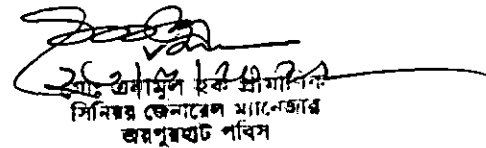 মোঃ এনামুল হক প্রামানিক
সিনিয়র জেনারেল ম্যানেজার
জয়পুরহাট পবিস